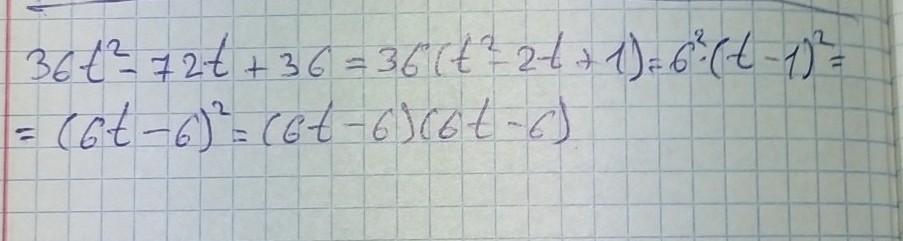 36t² - 72t + 36 = 36(t² - 2t + 1) = 6²·(t - 1)² =
= (6t - 6)² = (6t - 6)(6t - 6)